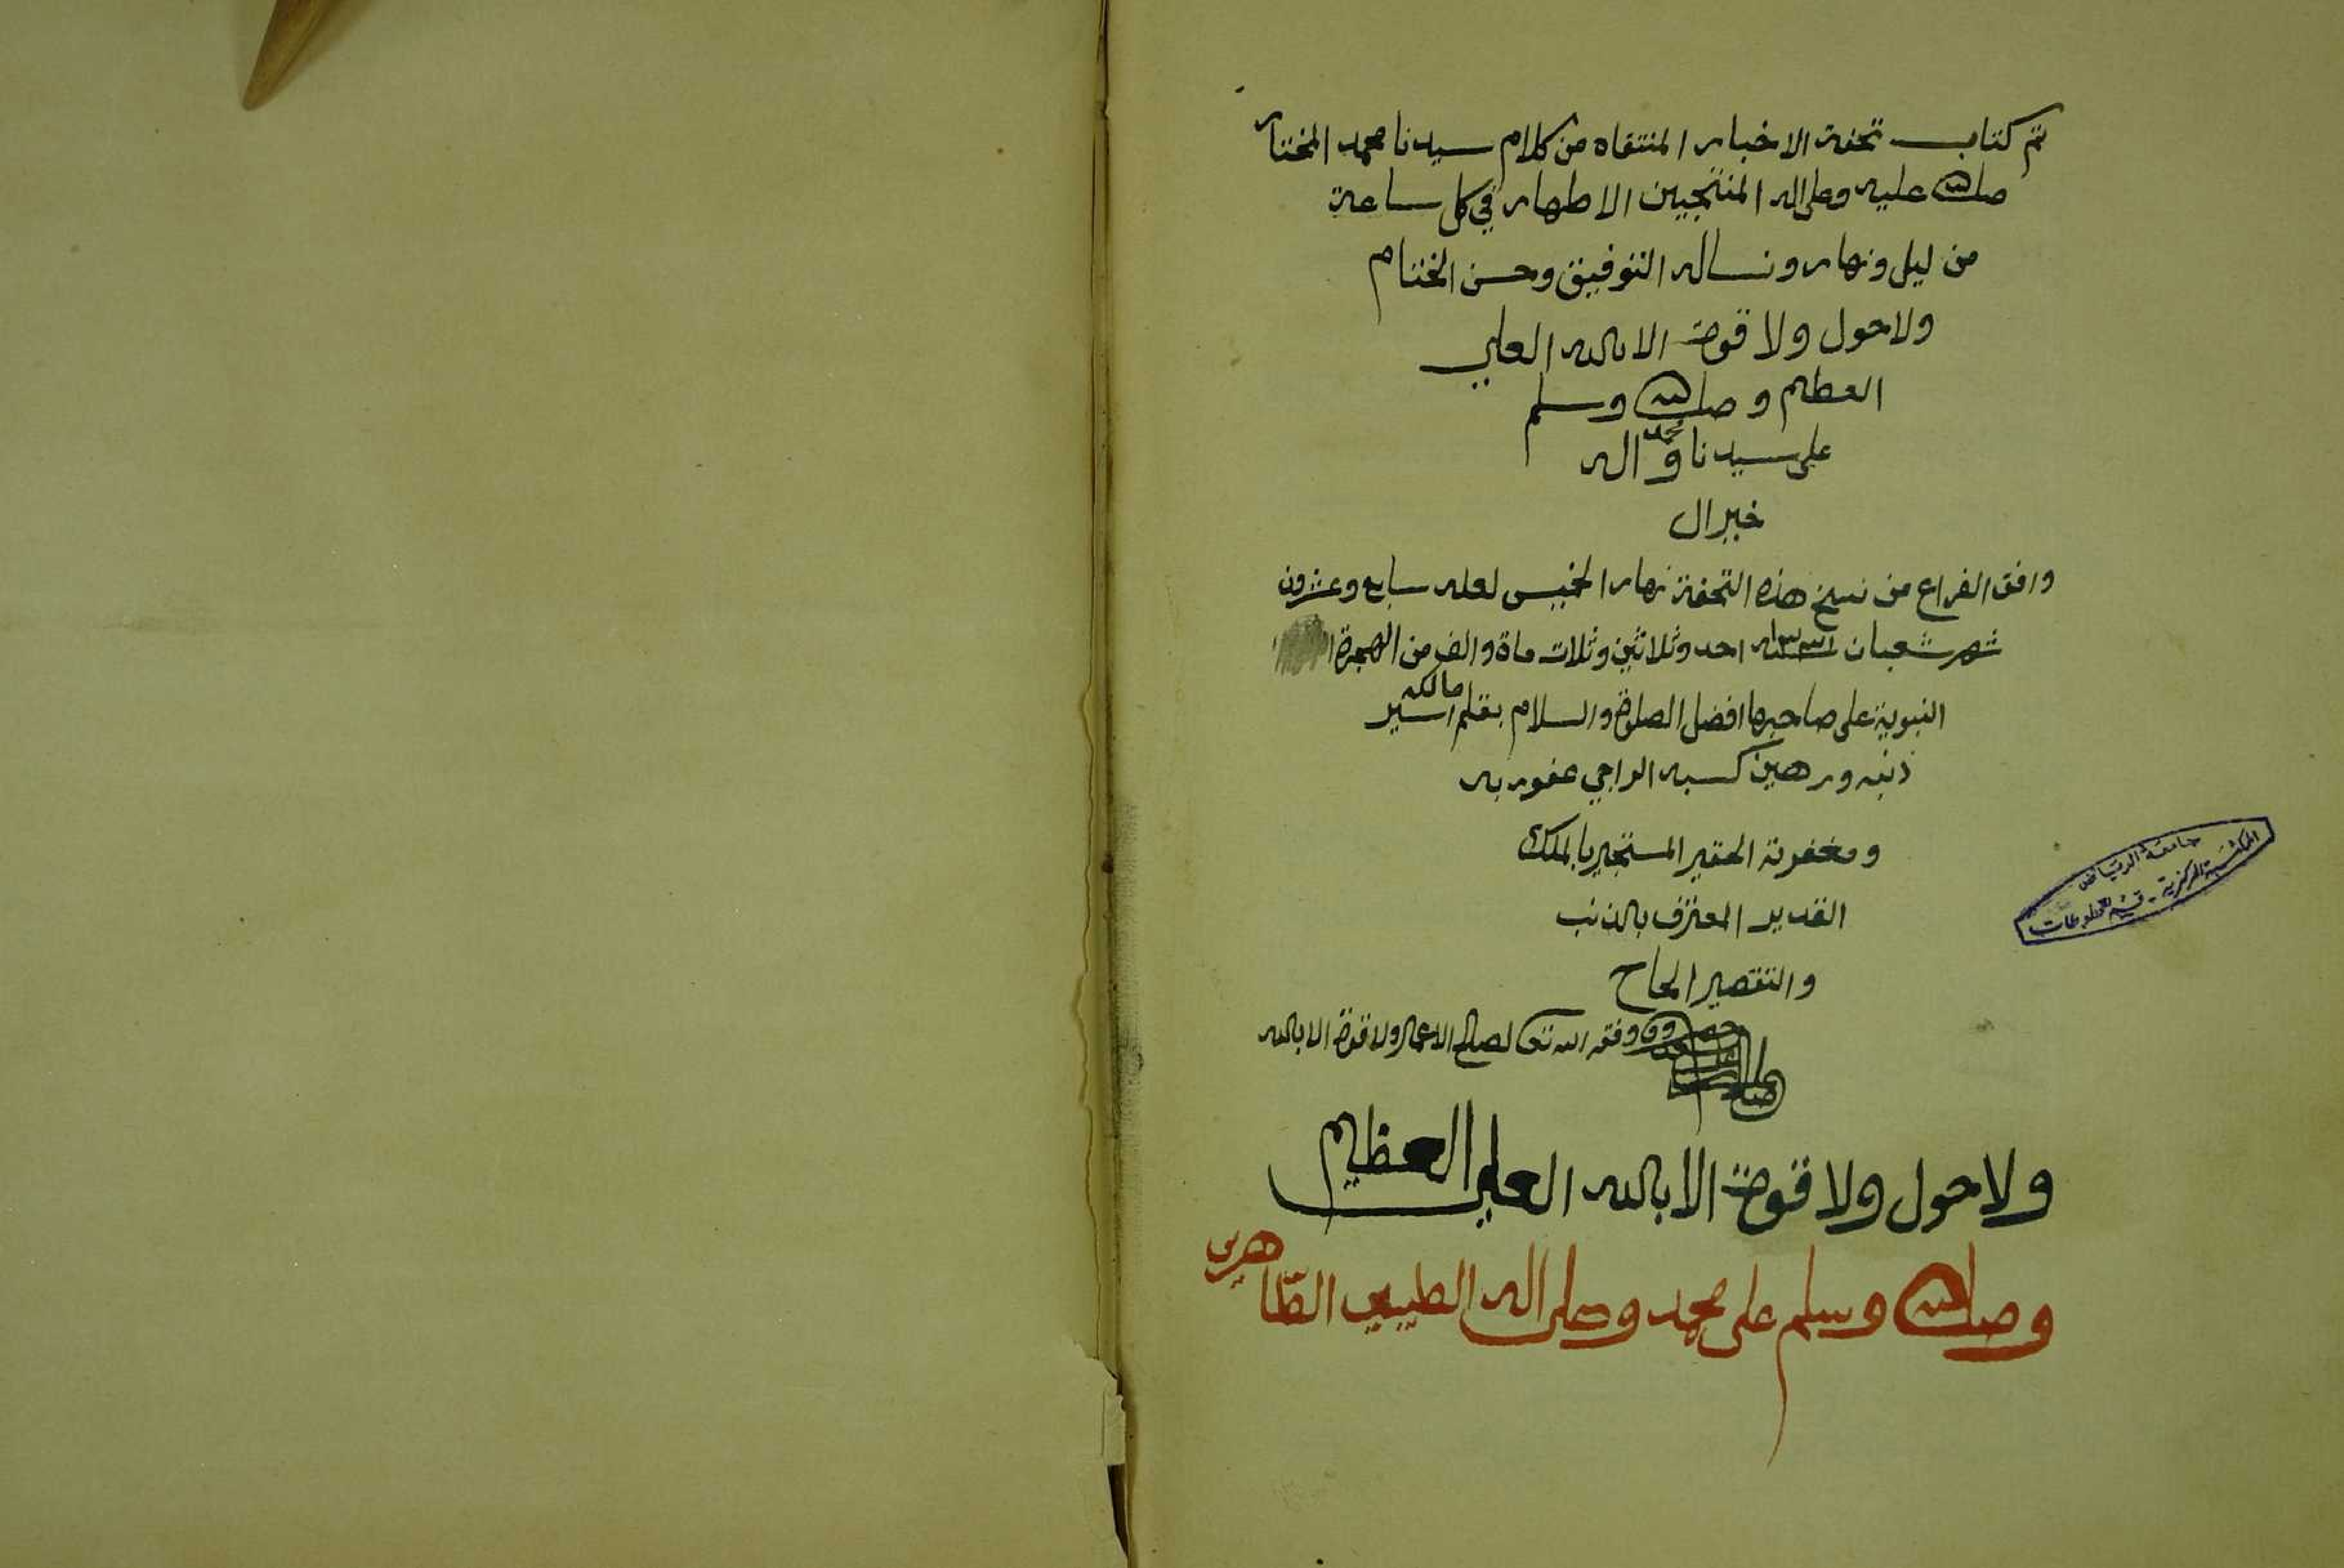 تم كتاب تحفة الاخيار المنتقاه من كلام سيدنا محمد المختار
صلى الله عليه وعلى اله المنتجبين الاطهار في كل ساعة
من ليل ونهار ونساله التوفيق وحسن الختام
ولا حول ولا قوة الا بالله العلي
العظيم وصلى الله وسلم
على سيدنا محمد واله
خير ال
وافق الفراغ من نسخ هذه التحفة نهار الخميس لعله سابع وعشرون
شهر شعبان سنة ١٣٣١ احد وثلاثين وثلاث ماة والف من الهجرة
النبوية على صاحبها افضل الصلوة والسلام بقلم مالكه اسير
ذنبه ورهين كسبه الراجي عفو ربه
ومغفرته الحقير المستجير بالملك
القدير المعترف بالذنب
والتقصير الحاج
وفقه الله تعالى لصالح الاعمال ولا قوة الا بالله
ولا حول ولا قوة الا بالله العلي العظيم
وصلى الله وسلم على محمد وعلى اله الطيبين الطاهرين
جامعة الرياض
المكتبة المركزية - قسم المخطوطات